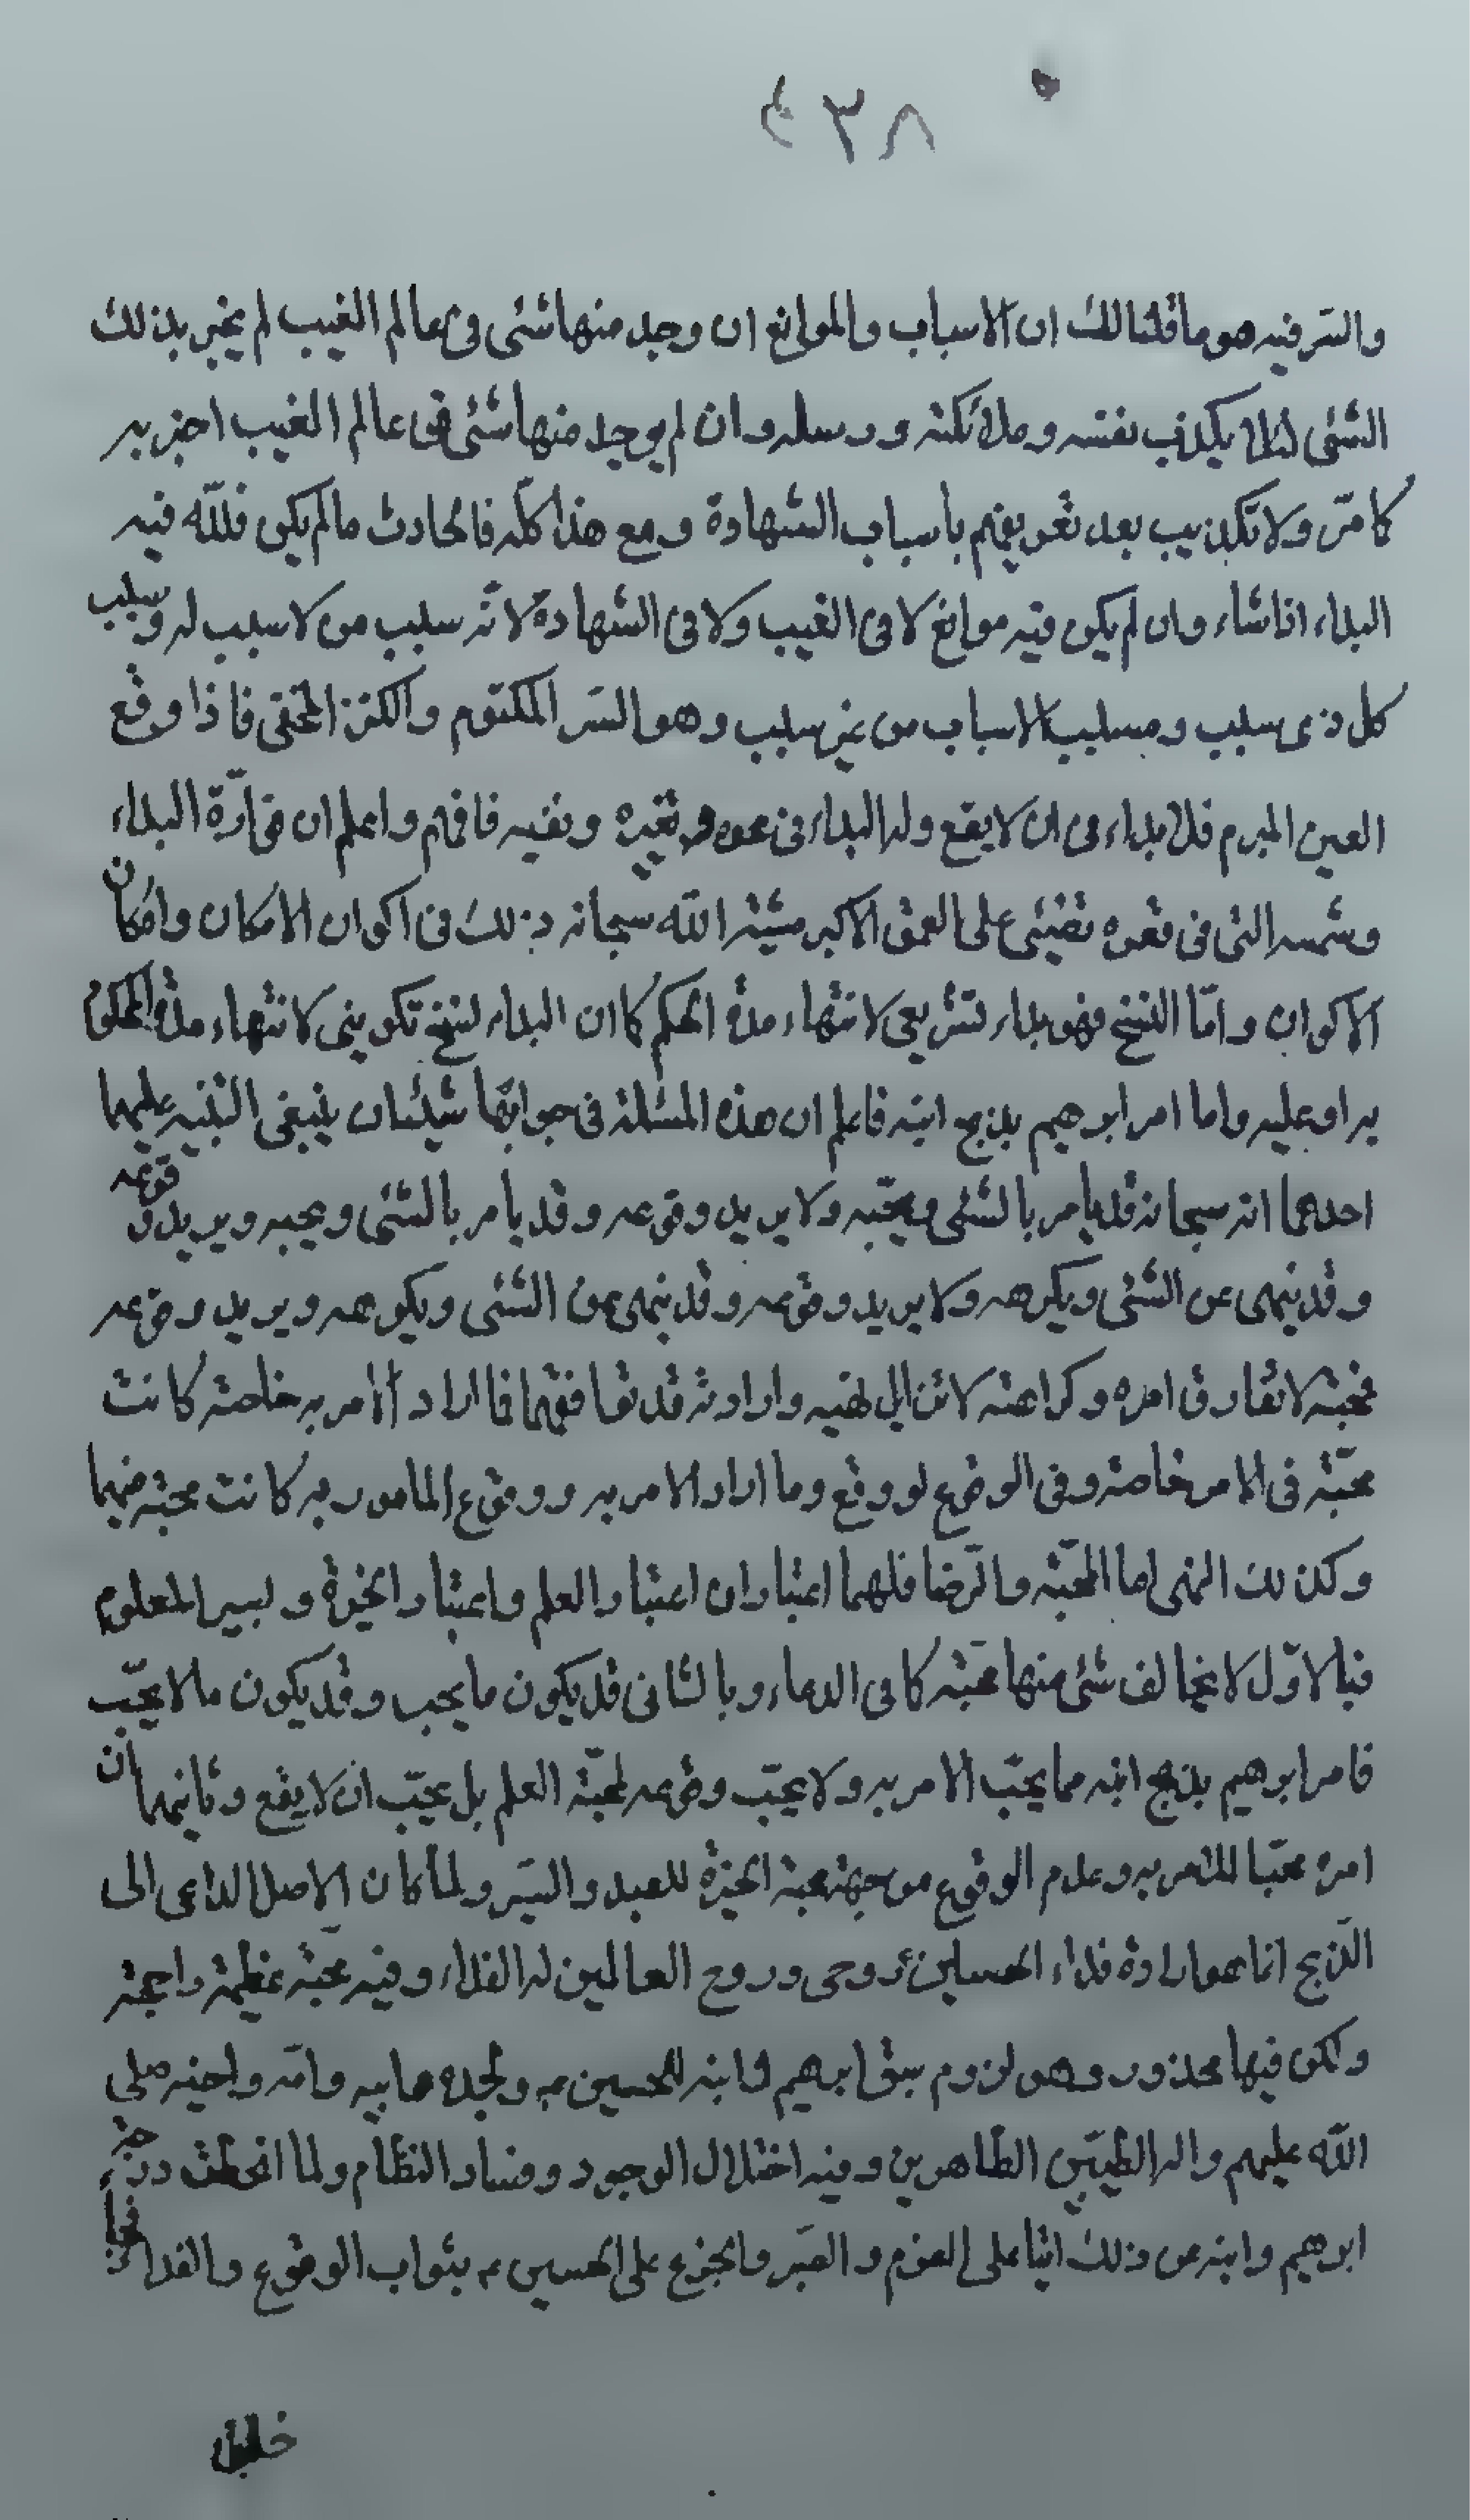 ٨٣
والسّر فيه هو ما قلنا لك ان الاسباب والموانع ان وجد منها شئى فى عالم الغيب لم يخبر بذلك
الشئى لئلا يكذب نفسه وملائكته ورسله وان لم يوجد منها شئى فى عالم الغيب اخبر به
كما مرّ ولا تكذيب بعد تعريفهم بأسباب الشهادة ومع هذا كلّه فالحادث ما لم يكن فللّه فيه
البداء اذا شاء وان لم يكن فيه موانع لا فى الغيب ولا فى الشهادة لانّه سبب من لا سبب له وسبب
كل ذى سبب ومسبب الاسباب من غير سبب وهو السّر المكتوم والكنز المخفى فاذا وقع
العين المبرم فلا بداء فى ان لا يقع وله البداء فى محوه وتغييره فافهم واعلم ان قارّة البداء
وشمسه التى فى قعره تضيئى على العمق الاكبر مشيّة الله سبحانه وذلك فى اكوان الامكان وامكان
الاكوان وامّا النسخ فهو بداء تشريعى لانتهاء مدة الحكم كما ان البداء نسخ تكوينى لانتهاء مدة المحكوم
به او عليه واما امر ابرهيم بذبح ابنه فاعلم ان هذه المسئلة فى جوابها شيئان ينبغى التنبيه عليهما
احدهما انه سبحانه قد يأمر بالشئى ويحبّه ولا يريد وقوعه وقد يامر بالشئى ويحبه ويريد وقوعه
وقد ينهى عن الشئى ويكرهه ولا يريد وقوعه وقد ينهى عن الشئى ويكرهه ويريد وقوعه
فمحبته لا تفارق امره وكراهته لا تزايل نهيه وارادته قد تفارقهما فاذا اراد الامر به خاصة كانت
محبّته فى الامر خاصة وفى الوقوع لو وقع وما اراد الامر به ووقوع المأمور به كانت محبته فيهما
وكذلك النهى اما المحبّة والرّضا فلهما اعتباران اعتبار العلم واعتبار الخيرة وليسير المعلوم
فبالاوّل لا يخالف شئى منها محبّته كما فى الدعاء وبالثانى قد يكون ما يحب وقد يكون ما لا يحبّ
فامر ابرهيم بذبح ابنه مما يحبّ الامر به ولا يحبّ وقوعه لمحبّة العلم بل يحبّ ان لا يقع وثانيهما ان
امره محبّا للامر به وعدم الوقوع من جهة محبة الخيرة للعبد والسّر ولما كان الاصل الداعى الى
الذبح انما هو ارادة فداء الحسين ع روحى وروح العالمين له الفداء وفيه محبّة عظيمة راجحة
ولكن فيها محذور وهو لزوم سبق ابرهيم وابنه للحسين ع ولجده وابيه وامّه واخيه صلى
الله عليهم واله الطيّبين الطّاهرين وفيه اختلال الوجود وفساد النظام ولما انحطّت درجة
ابرهيم وابنه عن ذلك اثيبا على العزم والصّبر والجزع على الحسين ع بثواب الوقوع والفداء